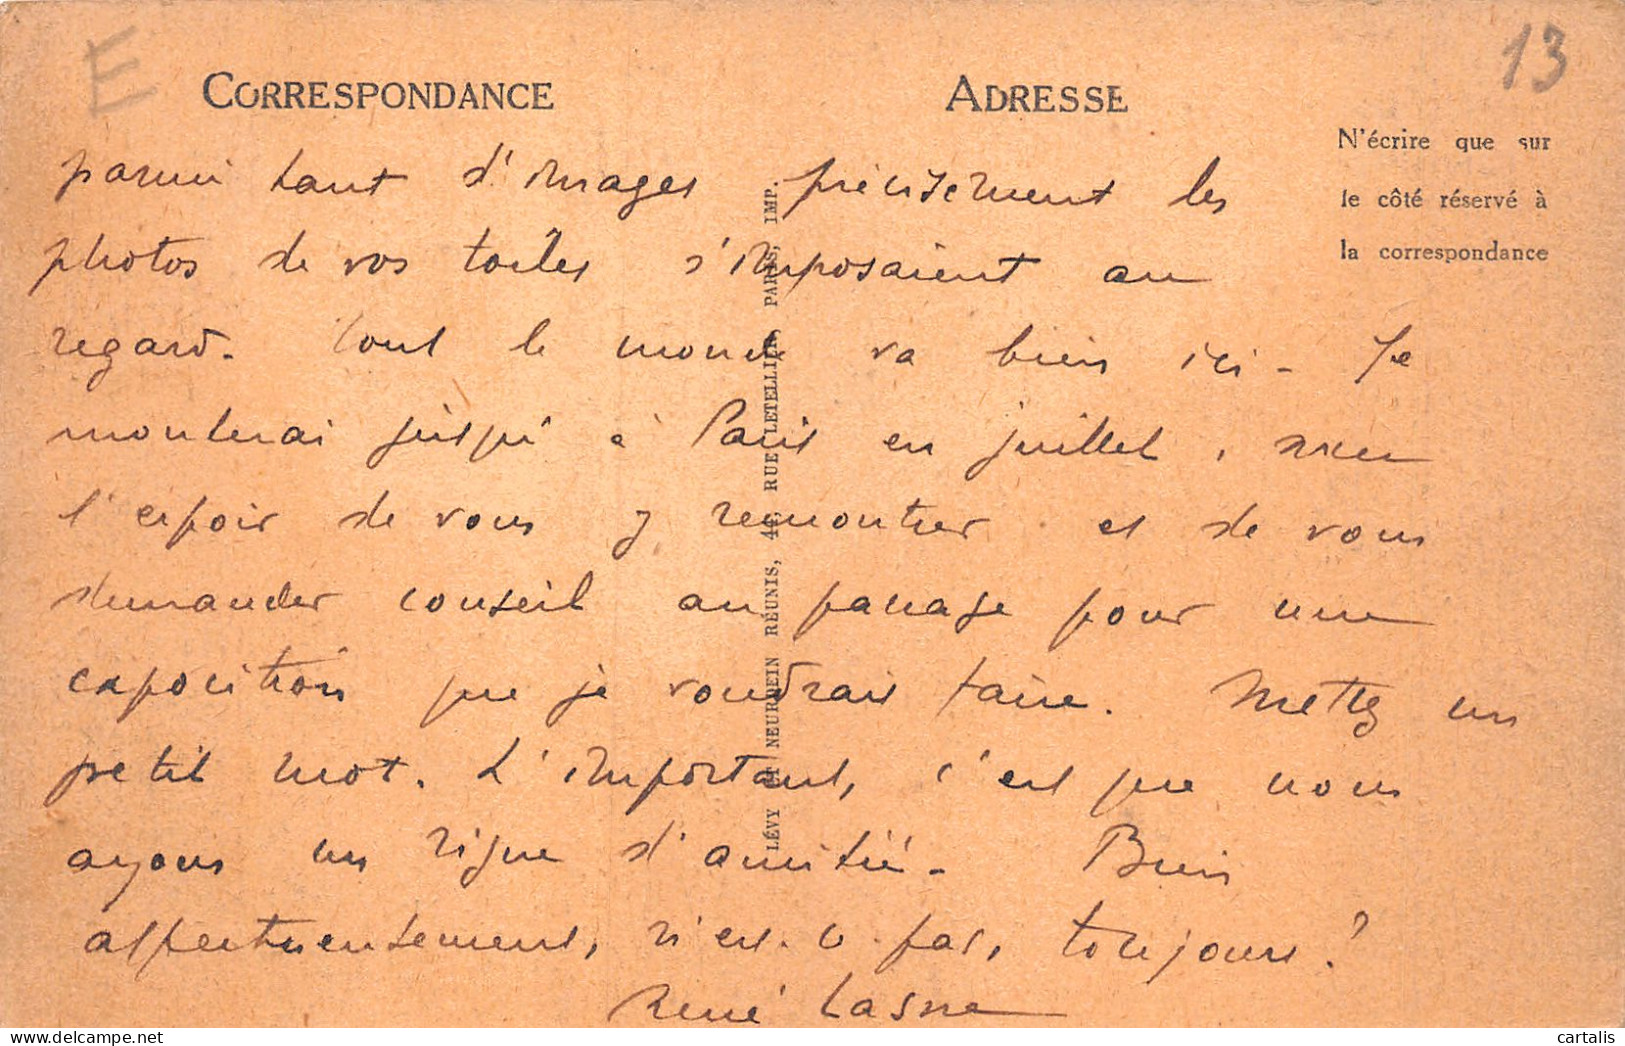 E
13
CORRESPONDANCE
ADRESSE
N'écrire que sur
le côté réservé à
la correspondance
parmi tant d'images précisément les
photos de vos toiles s'imposaient au
regard. Tout le monde va bien ici - Je
monterai jusqu'à Paris en juillet, avec
l'espoir de vous y remontrer et de vous
demander conseil au passage pour une
exposition que je voudrais faire. Mettez un
petit mot. L'important, c'est que nous
ayons un signe d'amitié - Bien
affectueusement, n'est-ce pas, toujours ?
René Lasne
LÉVY ET NEURDEIN RÉUNIS, 44, RUE LETELLIER, PARIS, IMP.
cartalis